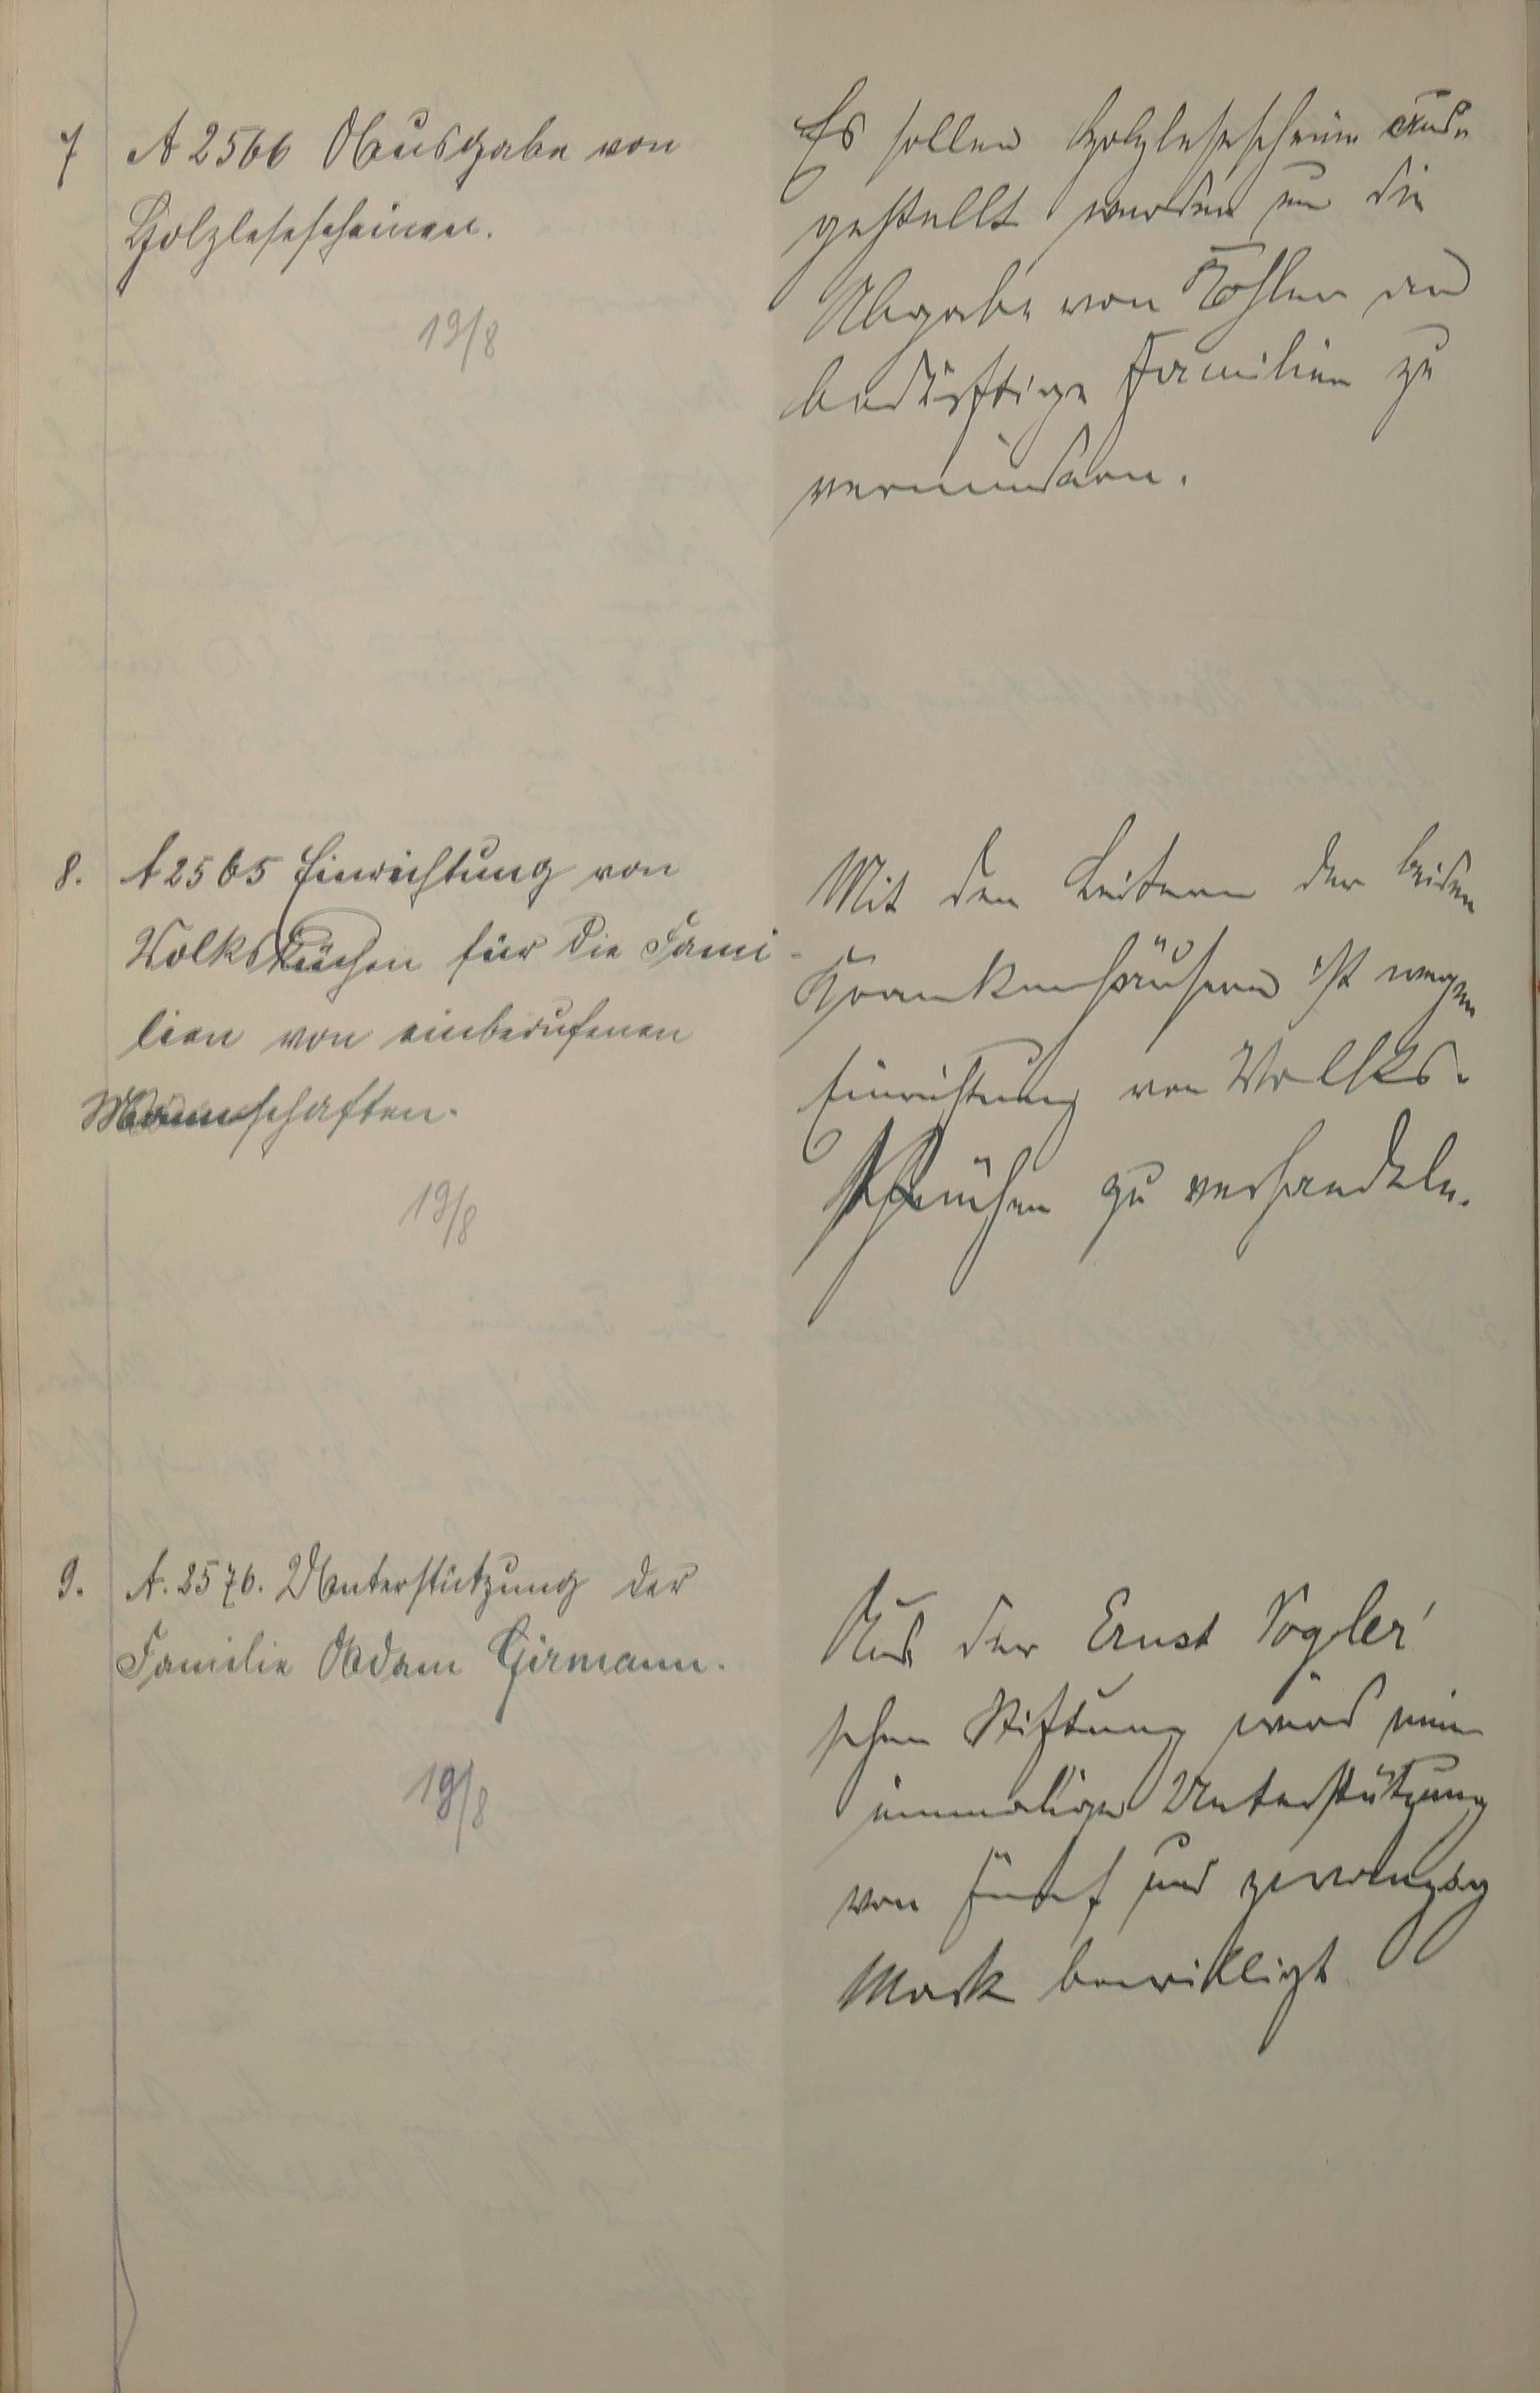 7 A 2566 Ausgabe von
Holzlesescheinen.
19/8
Es sollen Holzlesescheine aus-
gestellt werden um die
Abgabe von Kohlen an
bedürftige Familien zu
vermindern.
8. A 2565 Einrichtung von
Volksküchen für die Fami-
lien von einberufenen
Mannschaften.
19/8
Mit den Leitern der beiden
Krankenhäusern ist wegen
Einrichtung von Volks-
küchen zu verhandeln.
9. A. 2576. Unterstützung der
Familie Adam Girmann.
19/8
Aus der Ernst Vogler'
schen Stiftung wird eine
einmalige Unterstützung
von fünf und zwanzig
Mark bewilligt.